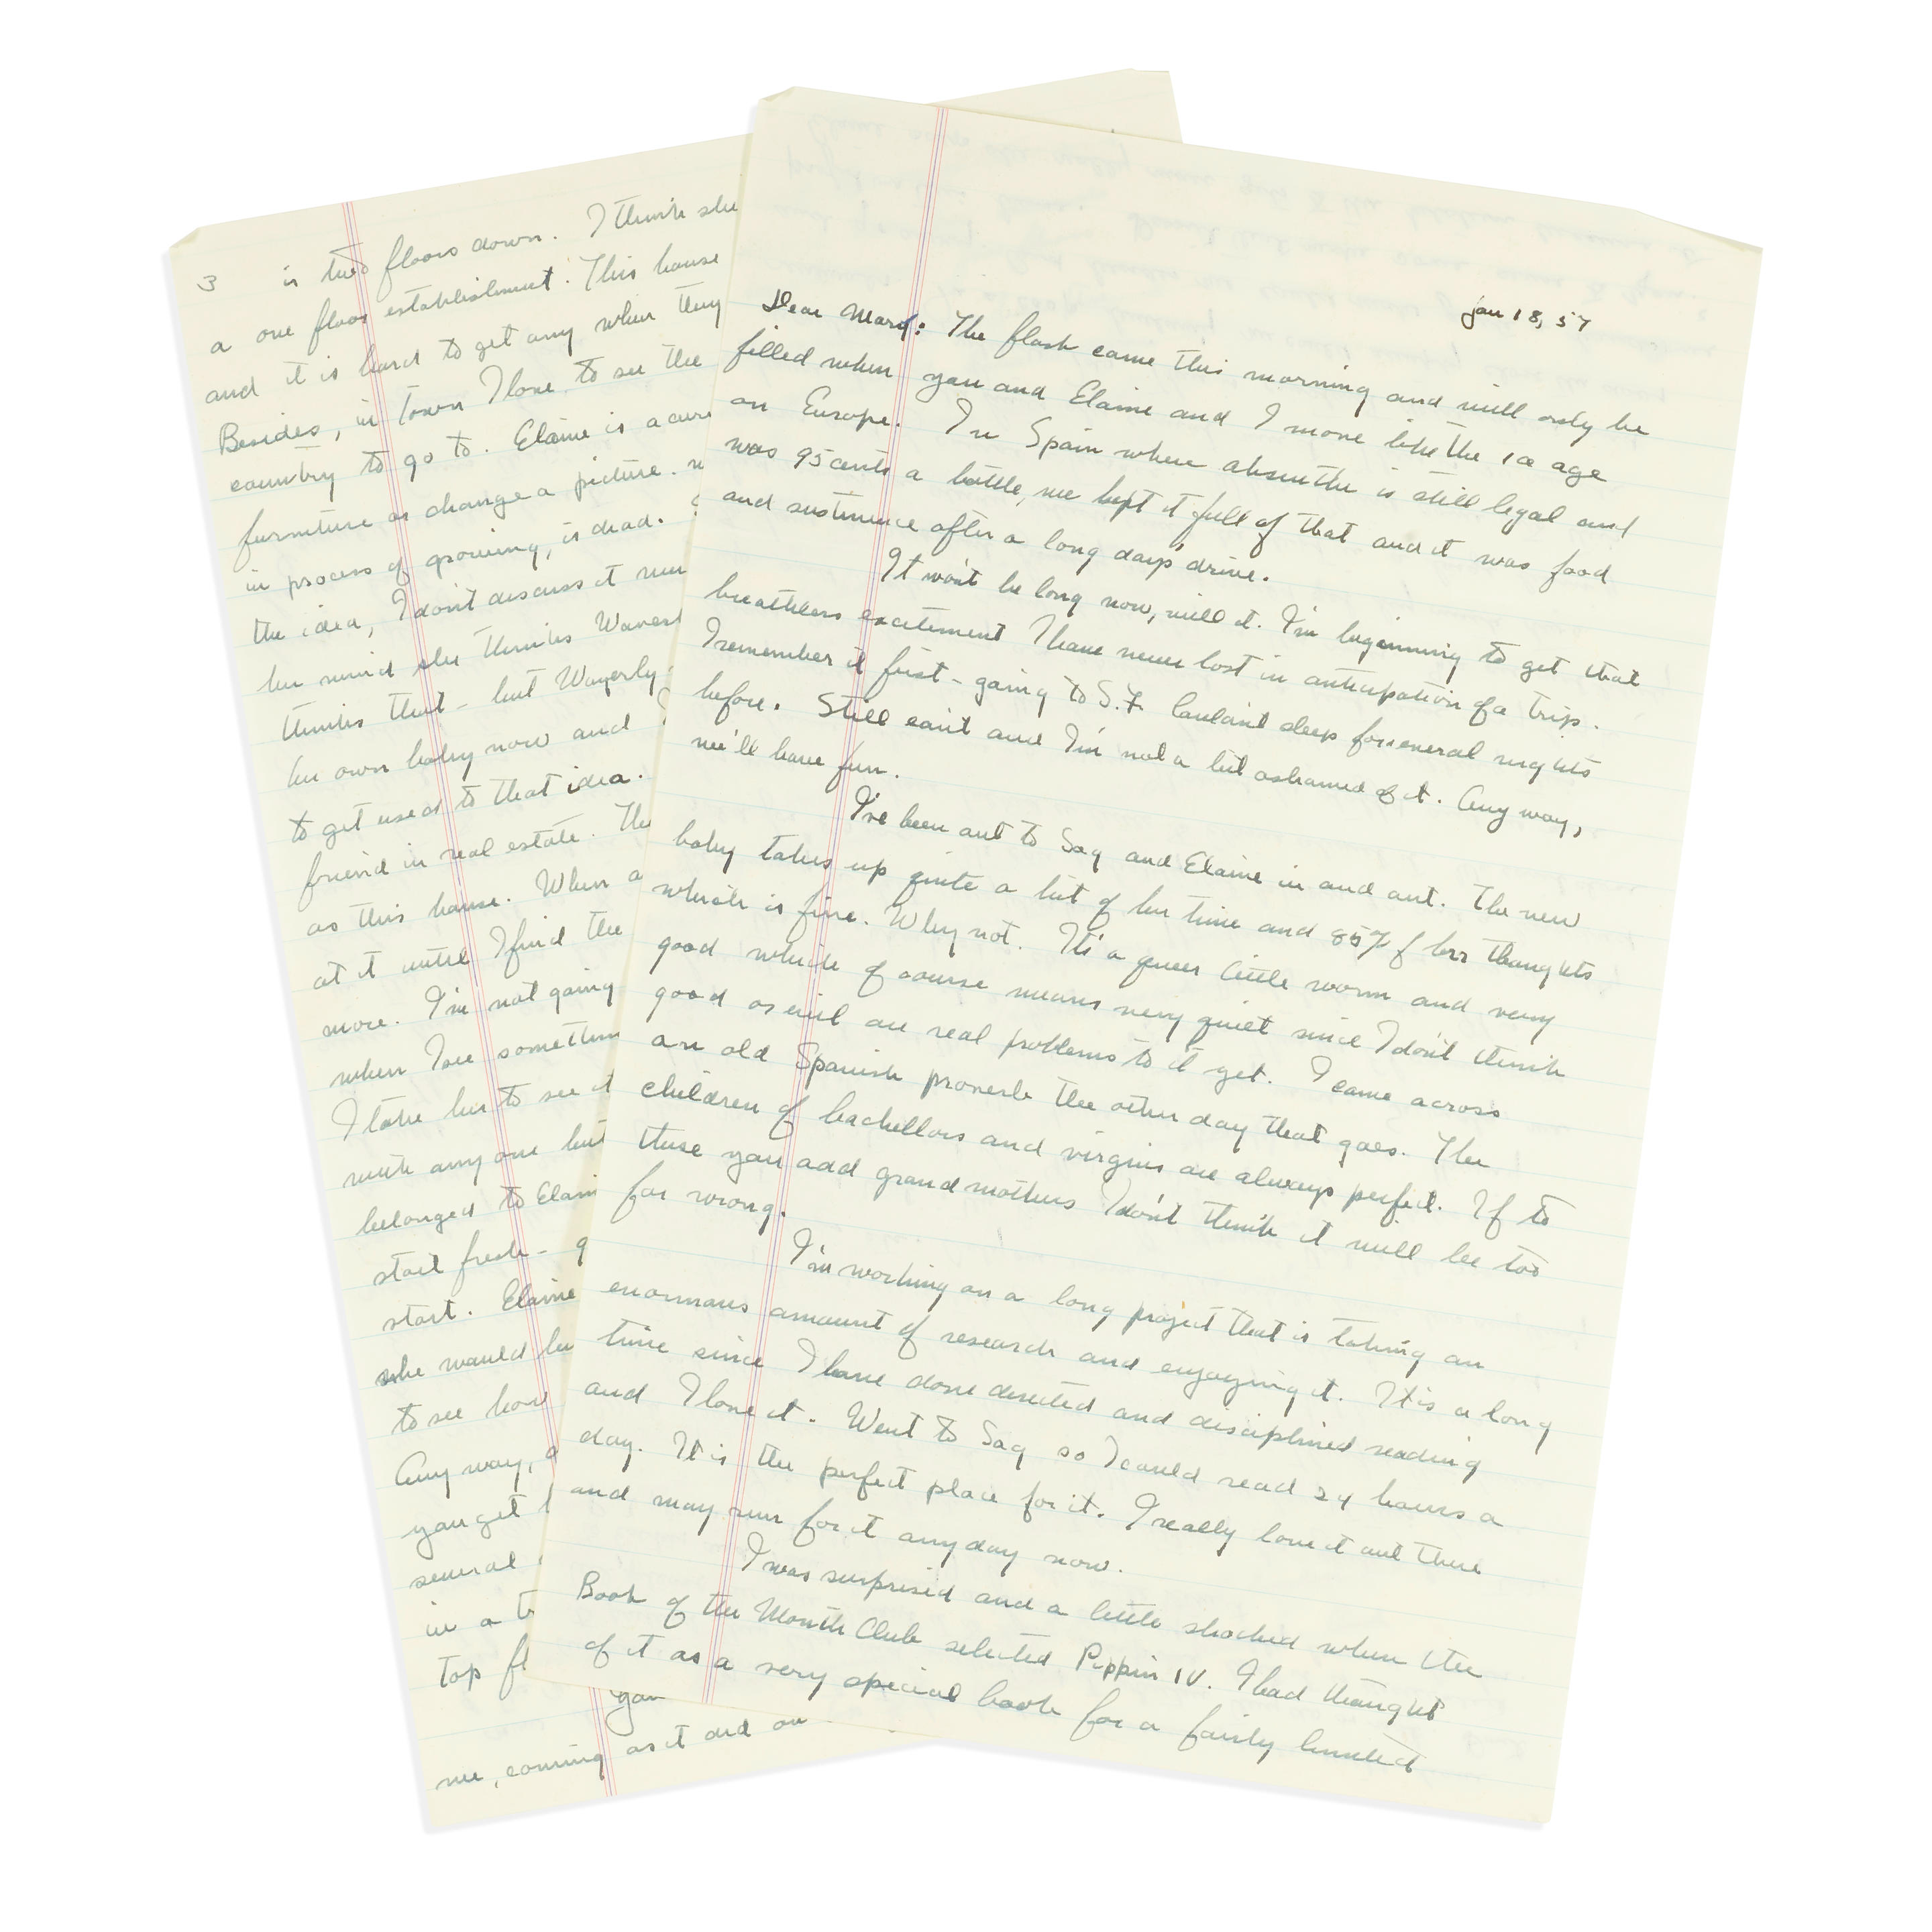 Jan 18, 57
Dear Mary: The flask came this morning and will only be
filled when you and Elaine and I move like the ice age
on Europe. In Spain where absinthe is still legal and
was 95 cents a bottle, we kept it full of that and it was food
and sustinence after a long day's drive.
It won't be long now, will it. I'm beginning to get that
breathless excitement I have never lost in anticipation of a trip.
I remember it first - going to S.F. Couldn't sleep for several nights
before. Still can't and I'm not a bit ashamed of it. Any way,
we'll have fun.
I've been out to Sag and Elaine in and out. The new
baby takes up quite a bit of her time and 85% of her thoughts
which is fine. Why not. It's a queer little worm and very
good which of course means very quiet since I don't think
good or evil are real problems to it yet. I came across
an old Spanish proverb the other day that goes. The
children of bachellors and virgins are always perfect. If to
these you add grandmothers I don't think it will be too
far wrong.
I'm working on a long project that is taking an
enormous amount of research and enjoying it. It is a long
time since I have done directed and disciplined reading
and I love it. Went to Sag so I could read 24 hours a
day. It is the perfect place for it. I really love it out there
and may run for it any day now.
I was surprised and a little shocked when the
Book of the Month Club selected Pippin IV. I had thought
of it as a very special book for a fairly limited
3 is two floors down. I think she
a one floor establishment. This house
and it is hard to get any when they
Besides, in town I love to see the
country to go to. Elaine is a
furniture or change a picture.
in process of growing, is dead.
the idea, I don't discuss it
her mind she thinks
thinks that - but Waverly
her own baby now and
to get used to that idea.
friend in real estate. The
as this house. When a
at it until I find the
more. I'm not going
when I see
I take her to see it
with any one but
belonged to
start fresh -
start. Elaine
she would
to see how
Any way,
you get
several
in a
top
you
me, coming as it did on